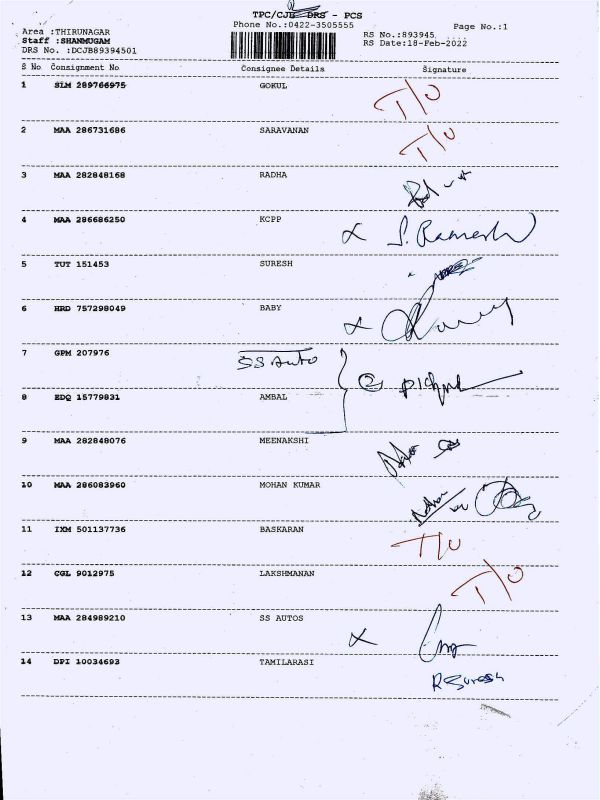 TPC/CJB DRS - PCS
Phone No.:0422-3505555
Page No.:1
Area :THIRUNAGAR
Staff :SHANMUGAM
DRS No. :DCJB89394501
RS No.:893945
RS Date:18-Feb-2022
S No Consignment No Consignee Details Signature
1 SLM 289766975 GOKUL T/O
2 MAA 286731686 SARAVANAN T/O
3 MAA 282848168 RADHA
4 MAA 286686250 KCPP S. Ramesh
5 TUT 151453 SURESH
6 HRD 757298049 BABY
7 GPM 207976 SS Auto
8 EDQ 15779831 AMBAL
9 MAA 282848076 MEENAKSHI
10 MAA 286083960 MOHAN KUMAR
11 IXM 501137736 BASKARAN T/O
12 CGL 9012975 LAKSHMANAN T/O
13 MAA 284989210 SS AUTOS
14 DPI 10034693 TAMILARASI R Suresh